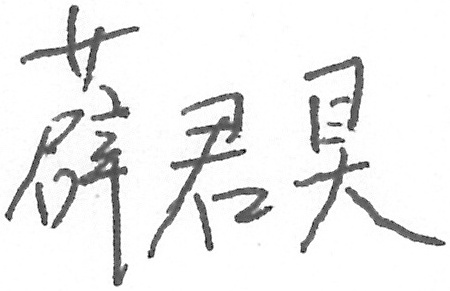 薛君昊